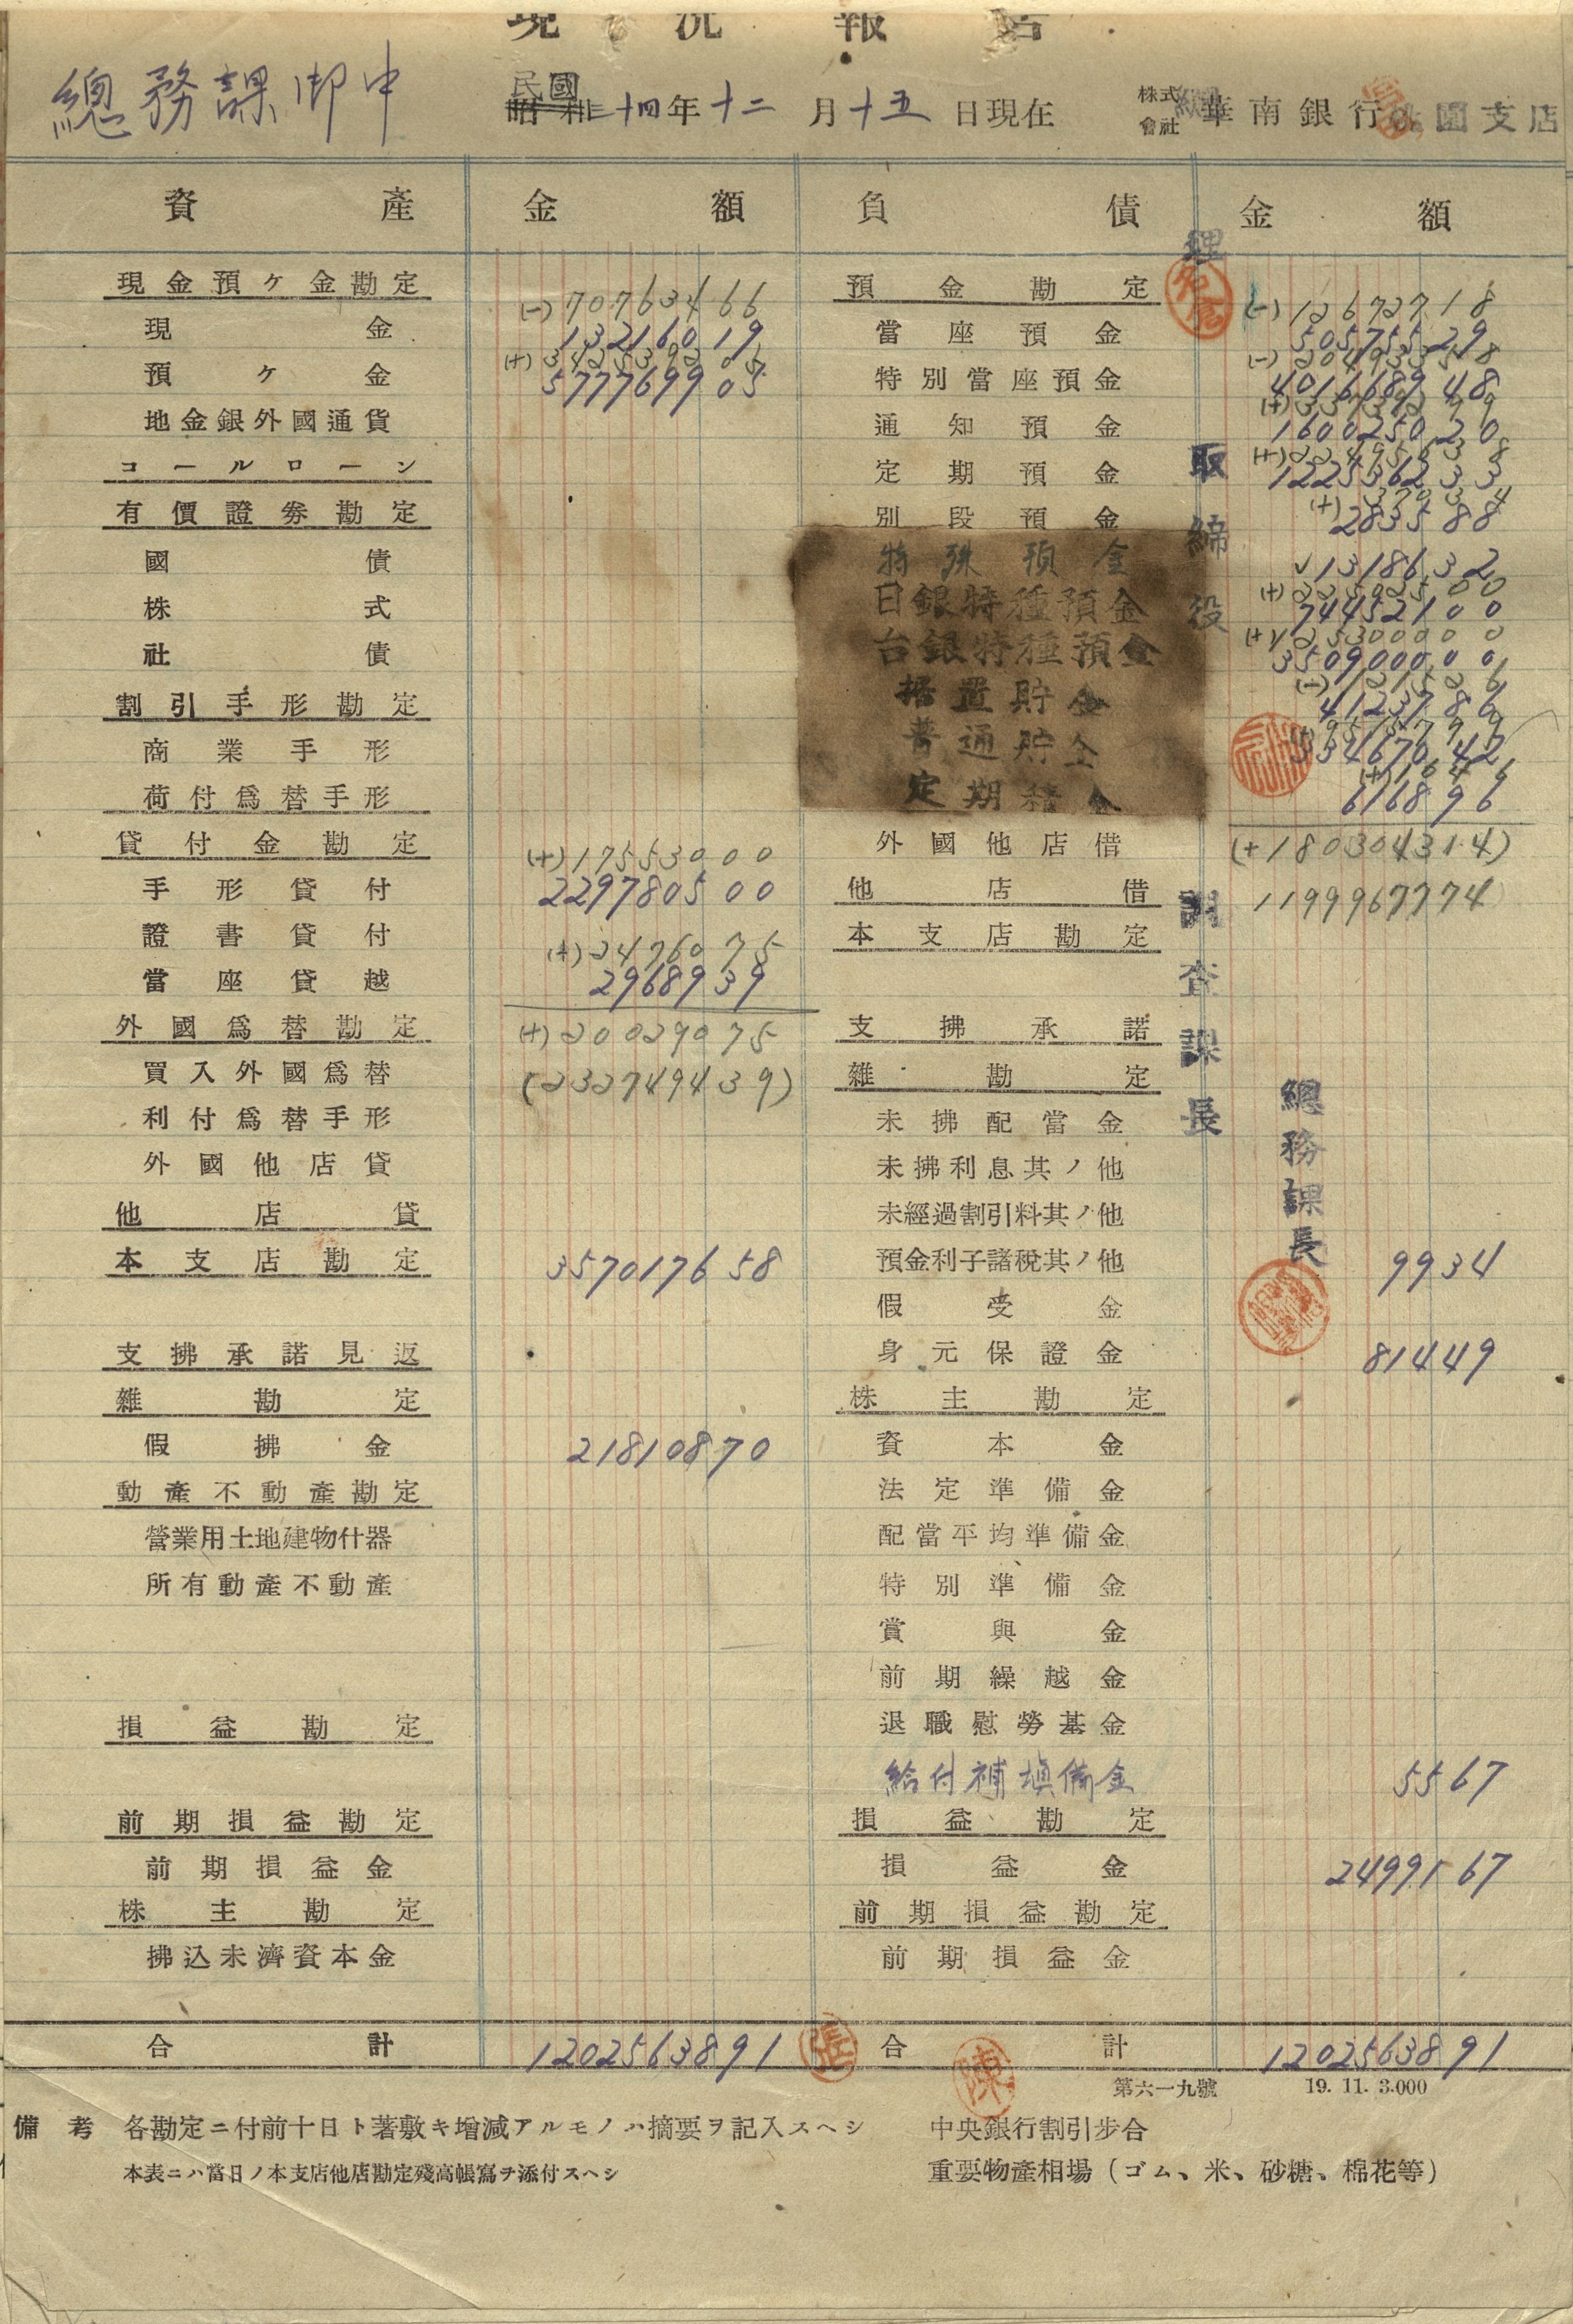 現況報告
總務課御中
民國
昭和三十四年十二月十五日現在
株式會社華南銀行桃園支店
資產 金額 負債 金額
現金預ケ金勘定 預金勘定
(-)70763466 (-)12672718
現金 13216019 當座預金 50575529
(-)20493358
預ケ金 577769905 特別當座預金 401668948
地金銀外國通貨 通知預金 160025020
コールローン 定期預金 122536233
有價證劵勘定 別段預金 283588
國債 特殊預金 ✓1318632
株式 日銀特種預金 74452100
社債 台銀特種預金 350900000
割引手形勘定 据置貯金 4123786
商業手形 普通貯金 53467042
荷付爲替手形 定期積金 616896
貸付金勘定 外國他店借 (+180304314)
(+)17553000
手形貸付 229780500 他店借 1199967774
證書貸付 本支店勘定
(+)2476075
當座貸越 2968939
外國爲替勘定 (+)20029075 支拂承諾
買入外國爲替 (232749439) 雜勘定
利付爲替手形 未拂配當金
外國他店貸 未拂利息其ノ他
他店貸 未經過割引料其ノ他
本支店勘定 357017658 預金利子諸稅其ノ他 9934
假受金
支拂承諾見返 身元保證金 81449
雜勘定 株主勘定
假拂金 21810870 資本金
動產不動產勘定 法定準備金
營業用土地建物什器 配當平均準備金
所有動產不動產 特別準備金
賞與金
前期繰越金
損益勘定 退職慰勞基金
給付補塡備金 5567
前期損益勘定 損益勘定
前期損益金 損益金 2499167
株主勘定 前期損益勘定
拂込未濟資本金 前期損益金
合計 1202563891 合計 1202563891
張
陳
取締役
調査課長
總務課長
第六一九號 19. 11. 3.000
備考 各勘定ニ付前十日ト著敷キ增減アルモノハ摘要ヲ記入スヘシ 中央銀行割引步合
本表ニハ當日ノ本支店他店勘定殘高帳寫ヲ添付スヘシ 重要物產相場(ゴム、米、砂糖、棉花等)